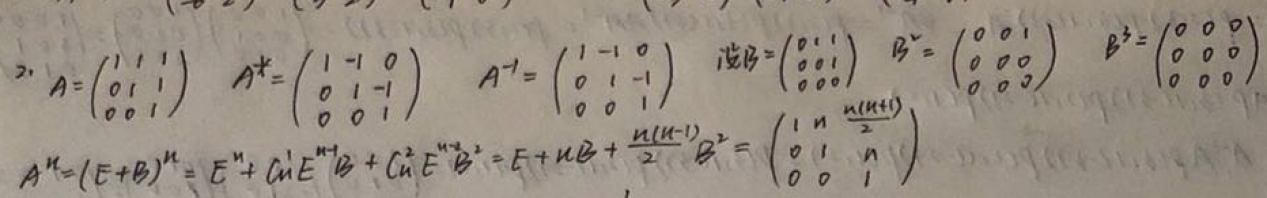 2. A=(1 1 1; 0 1 1; 0 0 1) A*=(1 -1 0; 0 1 -1; 0 0 1) A⁻¹=(1 -1 0; 0 1 -1; 0 0 1) 设B=(0 1 1; 0 0 1; 0 0 0) B²=(0 0 1; 0 0 0; 0 0 0) B³=(0 0 0; 0 0 0; 0 0 0)
Aⁿ=(E+B)ⁿ=Eⁿ+Cₙ¹Eⁿ⁻¹B+Cₙ²Eⁿ⁻²B²=E+nB+n(n-1)/2 B²=(1 n n(n+1)/2; 0 1 n; 0 0 1)